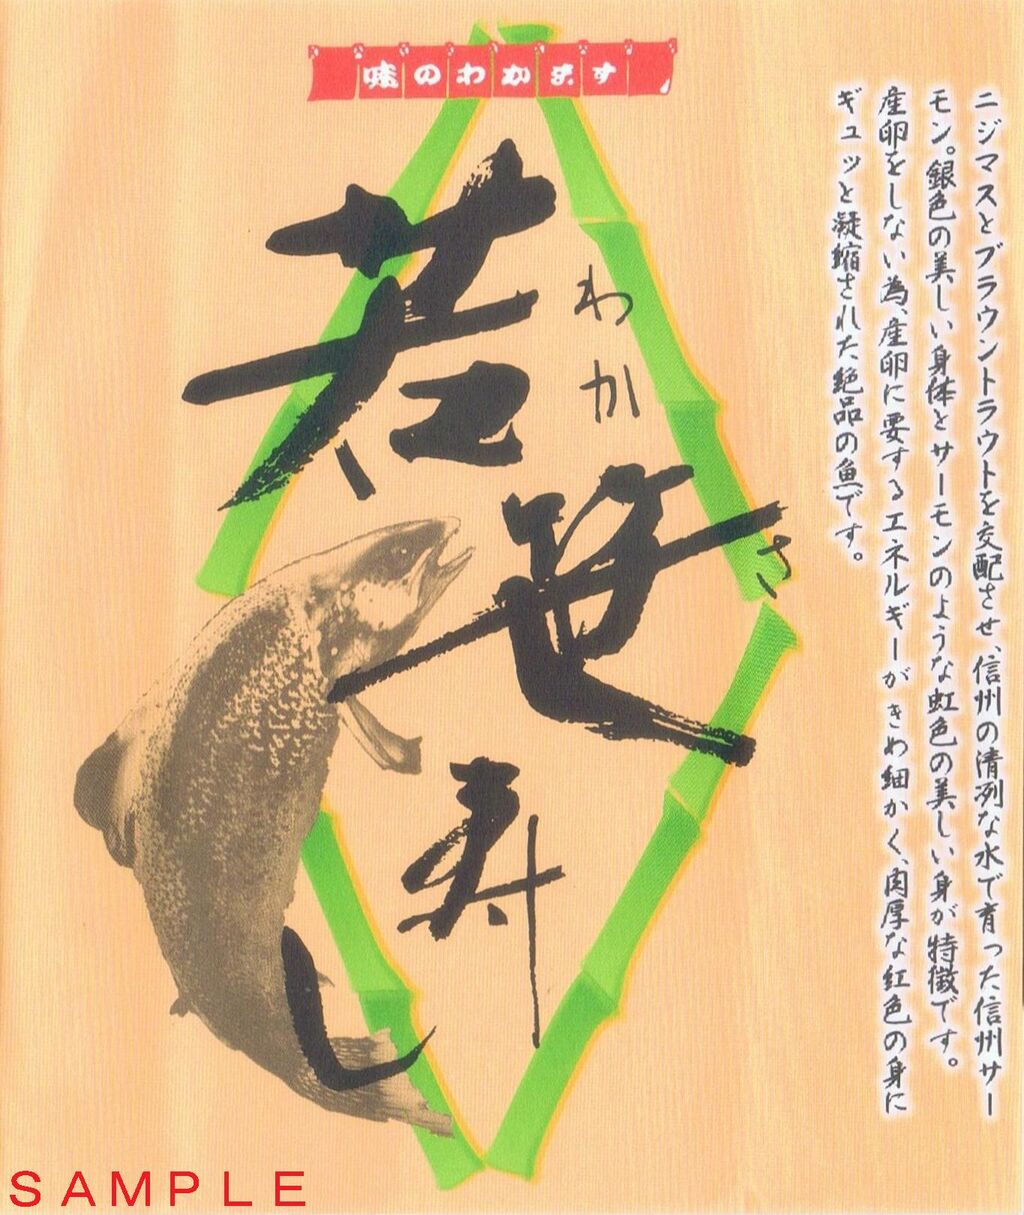 味のわかます
ニジマスとブラウントラウトを交配させ、信州の清冽な水で育った信州サー
モン。銀色の美しい身体とサーモンのような虹色の美しい身が特徴です。
産卵をしない為、産卵に要するエネルギーがきめ細かく、肉厚な紅色の身に
ギュッと凝縮された絶品の魚です。
わかさ
若笹寿し
SAMPLE